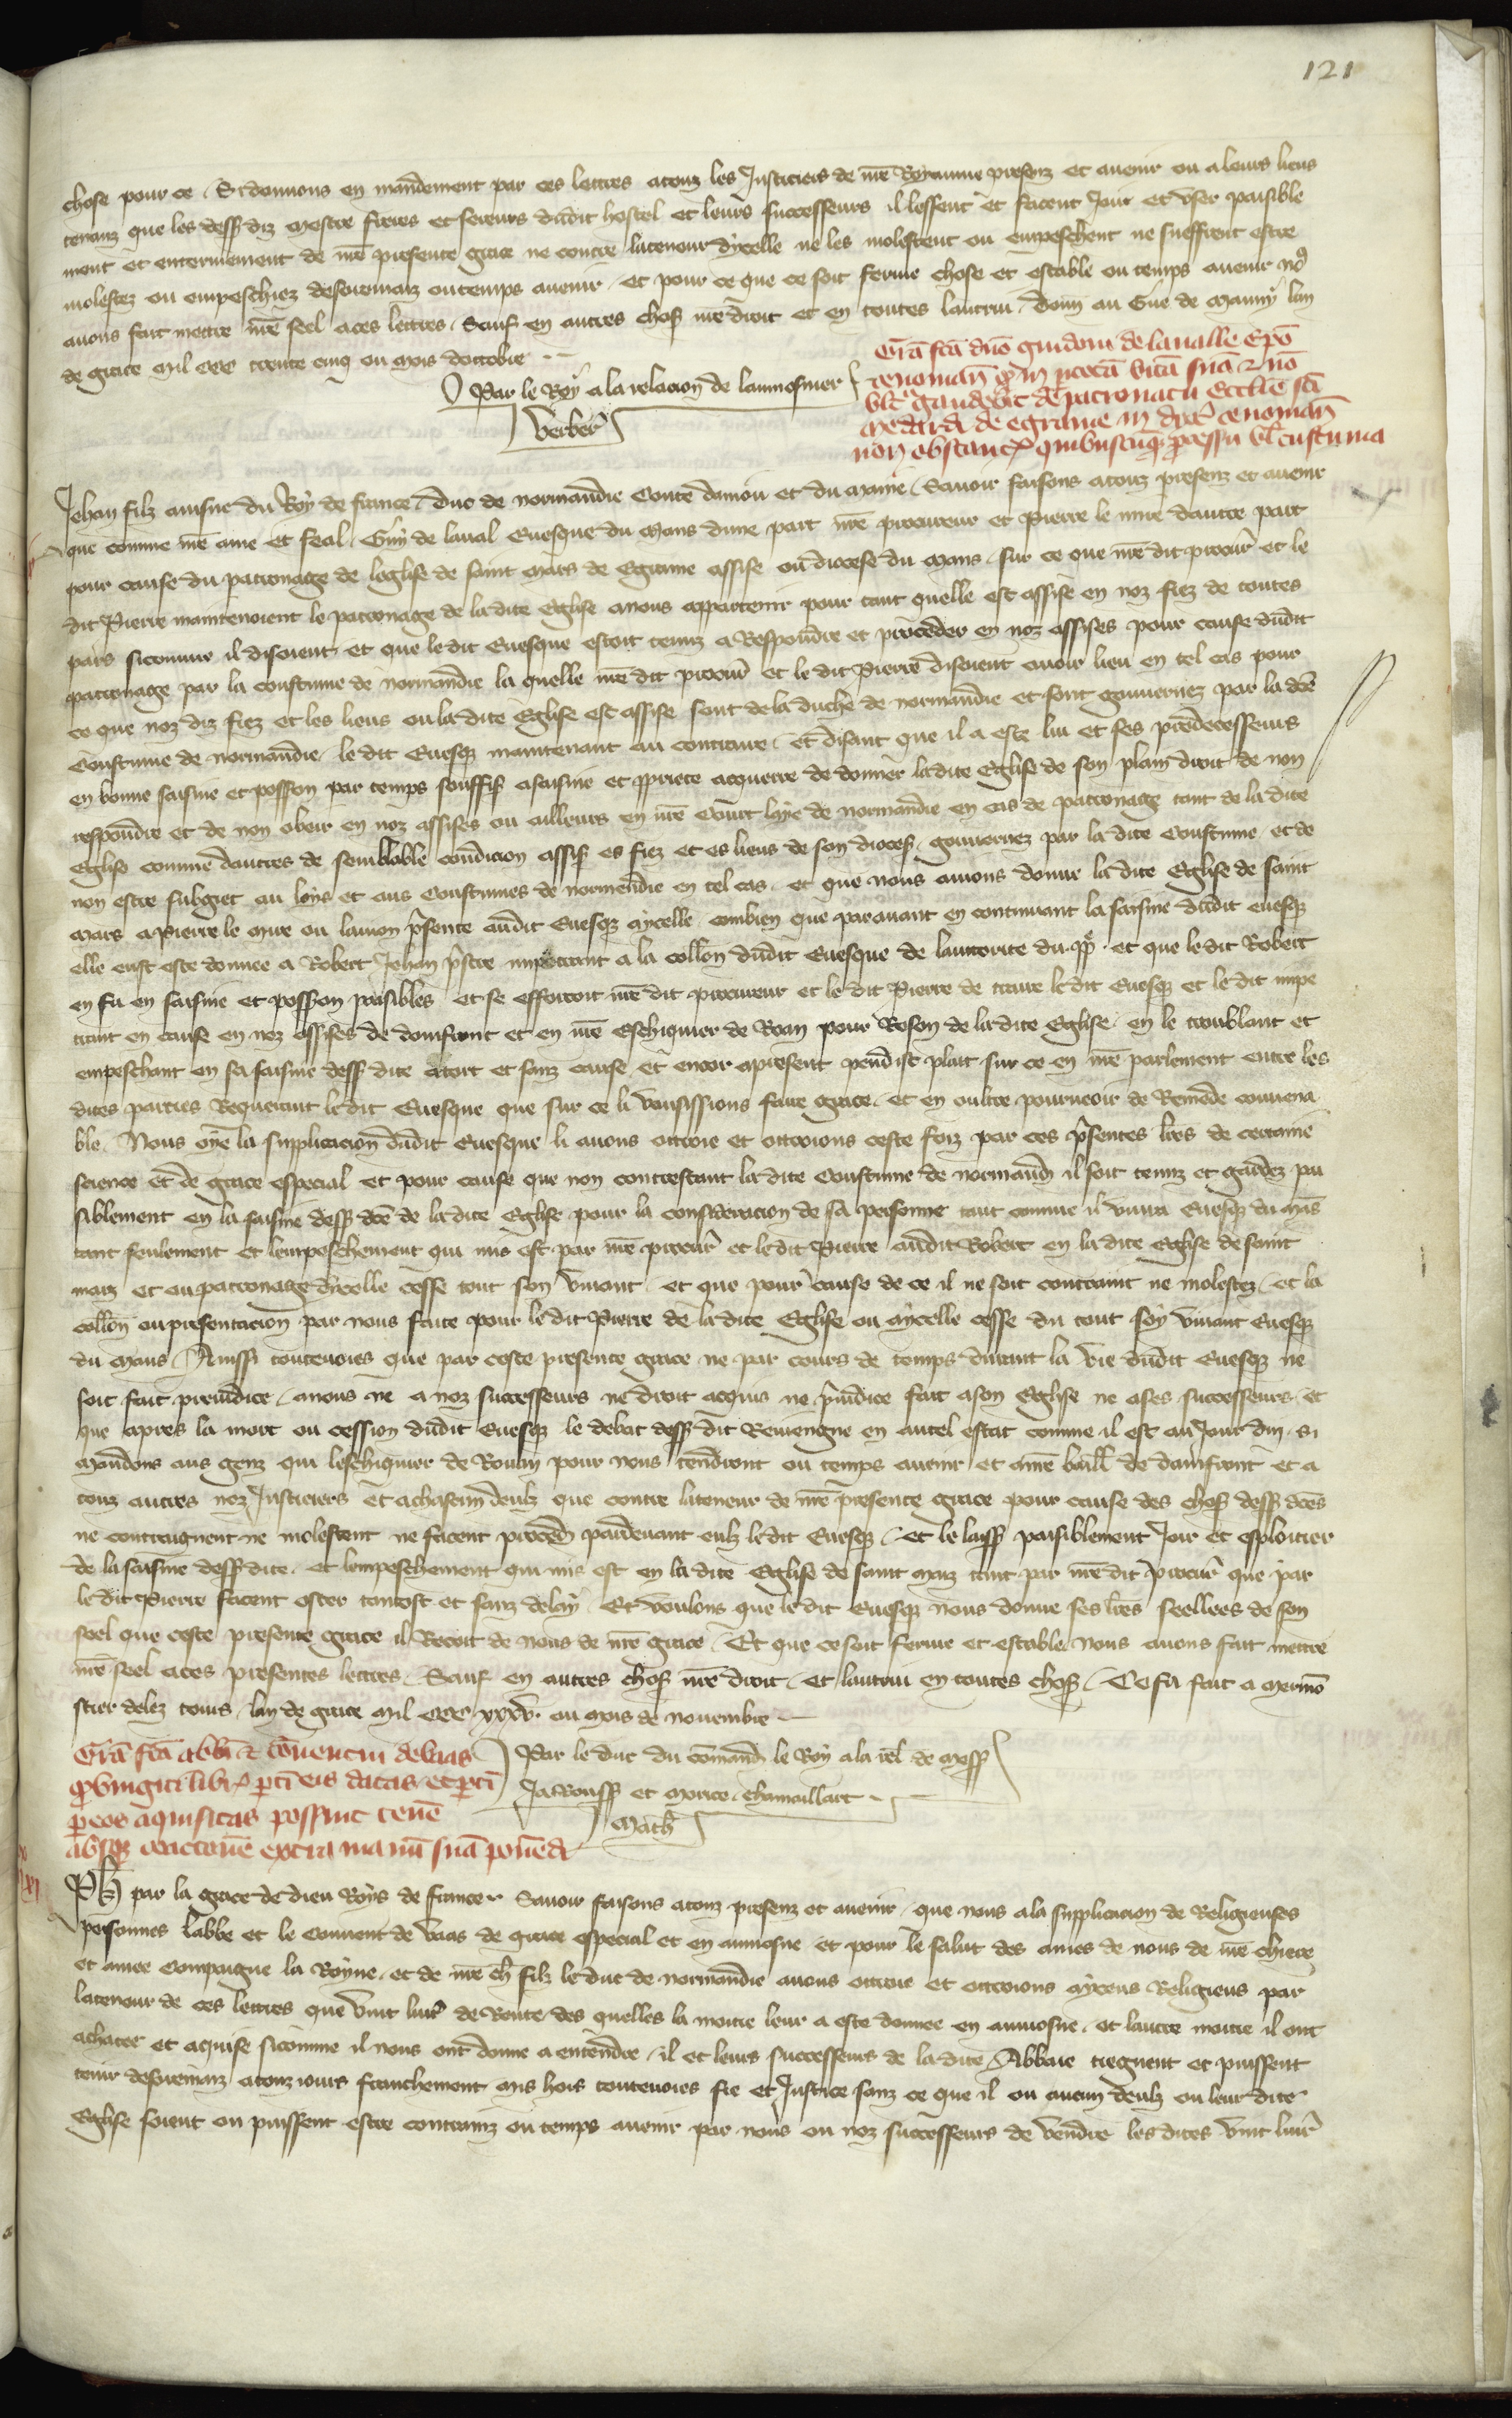 121
chose pour ce. Si donnons en mandement par ces lettres atouz les Justiciers de nrē Royaume presenz et auenir ou a leurs lieus
tenanz que les dess diz Mestre freres et sereurs dudit hostel et leurs successeurs il lessent et facent Joir et vser paisible
ment et enterinement de nrē presente grace ne contre la teneur dycelle ne les molestent ou empeschent ne sueffrent estre
molestez ou empeschiez desoremaiz ou temps auenir. et pour ce que ce soit ferme chose et estable ou temps auenir noꝰ
auons fait mettre nrē seel a ces lettres. Sauf en autres chos nrē droit et en toutes lautrui. Donn au Gue de Mauny lan
de grace Mil CCC trente cinq ou mois doctobre
Par le Roy a la relacion de laumosnier
Verber
Grā fcā dnō guidoni de laualle Epō
cenomaň qͣ in totā vitā suā & nō
vltͣ gaudebit de patronatu Ecclīe scī
medardi de egranie in dyoc cenomaň
non obstante quibuscūqꝫ processu vl custuma
Jehan filz ainsne du Roy de france. duc de normandie Conte daniou et du Maine. Sauoir faisons atouz presenz et auenir
que comme nrē ame et feal. Guy de laual Euesque du Mans dune part nrē procureur et Pierre le mire dautre part
pour cause du patronage de leglise de saint Mars de Egraine assise ou diocese du Mans. sur ce que nrē dit procur et le
dit Pierre maintenoient le patronage de ladite Eglise anous appartenir pour tant quelle est assise en noz fiez de toutes
pars sicomme il disoient et que ledit Euesque estoit tenuz a Respondre et proceder en noz assises pour cause dudit
patronage par la coustume de normandie la quelle nrē dit procur et le dit Pierre disoient auoir lieu en tel cas pour
ce que noz diz fiez et les lieus ou ladite Eglise est assise sont de la duche de normandie et sont gouuernez par la dcē
Coustume de normandie. le dit Euesqꝫ maintenant au contraire. Et disant que il a este lui et ses predecesseurs
en bonne saisine et possion par temps souffis asaisine et propriete acquerre de donner ladite Eglise de son plain droit de non
respondre et de non obeir en noz assises ou ailleurs en nrē Court laye de normandie en cas de patronage tant de la dite
Eglise comme dautres de semblable condicion assis es fiez et es lieus de son dioces. gouuernez par la dite Coustume. et de
non estre subgiet au loys et aus Coustumes de normendie en tel cas. et que nous auons donne ladite Eglise de saint
Mars a Pierre le Mire ou lauion psente audit Euesqꝫ aycelle combien que parauant en continuant la saisine dudit euesqꝫ
elle eust este donnee a Robert Jehan pstre impetrant a la collon dudit Euesque de lauctorite du pp. et que ledit Robert
en fu en saisine et possion paisibles et se efforcoit nrē dit procureur et le dit Pierre de traire le dit Euesqꝫ et le dit impe
trant en cause en noz assises de domfront et en nrē Eschiquier de Roan pour Reson de ladite Eglise. en le troublant et
empeschant en sa saisine dess dite atort et sanz cause. et encor apresent pendist plait sur ce en nrē parlement entre les
dites parties Requerant ledit Euesque que sur ce li vousissions faire grace. et en oultre pourueoir de Remede conuena
ble. Nous oye la supplicacion dudit Euesque li auons ottroie et ottroions ceste foiz par ces psentes lrēs de certaine
science et de grace especial et pour cause que non contrestant ladite Coustume de normand il soit tenuz et gardez pai
siblement en la saisine dess dcē de ladite Eglise pour la consideracion de sa personne tant comme il viura Euesqꝫ du Mās
tant seulement et lempeschement qui mis est par nrē procur et ledit Pierre audit Robert en ladite Eglise de saint
marz et ou patronage dicelle cesse tout son viuant. et que pour cause de ce il ne soit contraint ne molestez. et la
collon ou presentacion par nous faite pour le dit Pierre de ladite Eglise ou aycelle cesse du tout soy viuant Euesqꝫ
du Mans. Ainssi toutesuoies que par ceste presente grace ne par cours de temps durant la vie dudit Euesqꝫ ne
soit fait preiudice. anous ne a noz successeurs ne droit acquis ne piudice fait a son Eglise ne ases successeurs. et
que apres la mort ou cession dudit Euesqꝫ le debat dess dit Reuiengne en autel estat comme il est au Jour dui. Si
Mandons aus genz qui leschiquier de Rouan pour nous tendront ou temps auenir et a nrē baill de damfront et a
touz autres noz Justiciers et a chascun deulz que contre la teneur de nrē presente grace pour cause des chos dess dcēs
ne contreignent ne molestent ne facent proced pardeuant eulz ledit Euesqꝫ. et le laiss paisiblement Joir et esploitier
de la saisine dess dite. et lempeschement qui mis est en ladite Eglise de saint Marz tant par nrē dit procur que par
ledit Pierre facent oster tantost et sanz delay. Et voulons que le dit Euesqꝫ nous donne ses lrēs seellees de son
seel que ceste presente grace il Recoit de nous de nrē grace. Et que ce soit ferme et estable nous auons fait mettre
nrē seel aces presentes lettres. Sauf en autres chos nrē droit. et lautrui en toutes chos. Ce fu fait a Mermō
stier delez tours. lan de grace Mil CCC xxxv. ou mois de nouembre
Grā fcā abbī & conuentui de vaas
qͣ viginti libr pti eis datas. et ptī
per eos aquisitas possint tenē
absqꝫ coactione extra manū suā ponēdi
Par le duc du cōmand le Roy a la rel de mess
Ja Rouss et Morice chamaillart
Math
Ph par la grace de dieu Roys de france. Sauoir faisons atouz presenz et auenir. que nous a la supplicacion de Religieuses
personnes labbe et le Conuent de Vaas de grace especial et en aumosne et pour le salut des ames de nous de nrē chiere
et amee Compaigne la Royne. et de nrē ch filz le duc de normandie auons ottroie et ottroions ayceus Religieus par
lateneur de ces lettres que vint liur de Rente des quelles la moitie leur a este donnee en aumosne. et lautre moitie il ont
achatee et aquise sicomme il nous ont donne a entendre. il et leurs successeurs de ladite Abbaie tiegnent et puissent
tenir desoremaiz atouz iours franchement mis hors toutesuoies fie et Justice sanz ce que il ou aucun deulz ou leur dite
Eglise soient ou puissent estre contrainz ou temps auenir par nous ou noz successeurs de vendre les dites vint liur